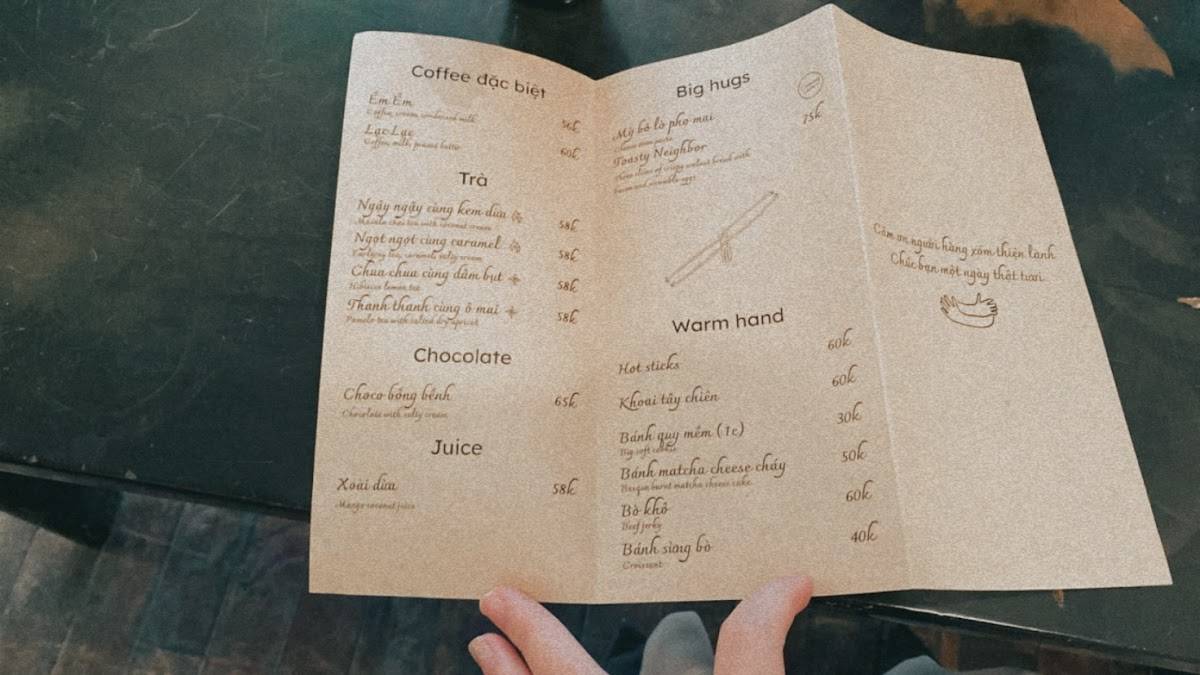 Coffee đặc biệt
Êm Êm
Coffee, cream, condensed milk
56k
Lạc Lạc
Coffee, milk, peanut butter
60k
Trà
Ngậy ngậy cùng kem dừa
58k
Masala chai tea with coconut cream
Ngọt ngọt cùng caramel
58k
Earlgrey tea, caramel, salty cream
Chua chua cùng dâm bụt
58k
Hibiscus lemon tea
Thanh thanh cùng ô mai
58k
Pomelo tea with salted dry apricot
Chocolate
Choco bồng bềnh
65k
Chocolate with salty cream
Juice
Xoài dừa
58k
Mango coconut juice
Big hugs
Mỳ bỏ lò phô mai
75k
Toasty Neighbor
Three slices of crispy walnut bread with
bacon and scramble eggs
Warm hand
Hot sticks
60k
Khoai tây chiên
60k
Bánh quy mềm (1c)
30k
Big soft cookie
Bánh matcha cheese cháy
50k
Basque burnt matcha cheese cake
Bò khô
60k
Beef jerky
Bánh sừng bò
40k
Croissant
Cảm ơn người hàng xóm thiện lành
Chúc bạn một ngày thật tươi